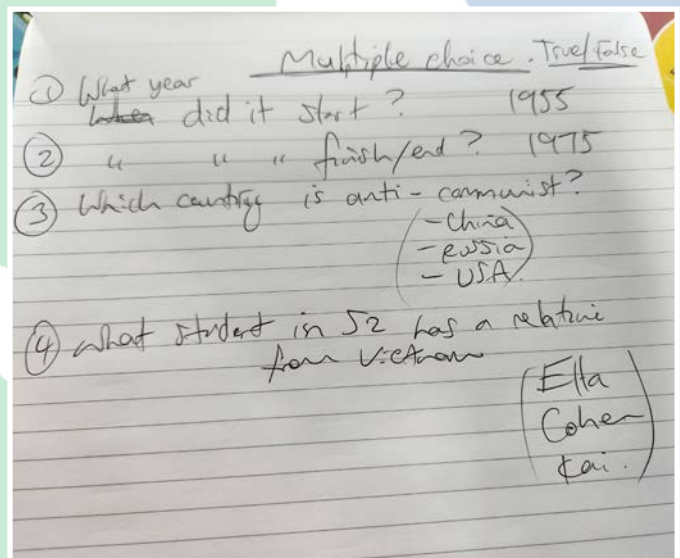 Multiple choice. True/False
① What year
when did it start? 1955
② " " " finish/end? 1975
③ Which country is anti-communist?
- China
- Russia
- USA
④ What student in S2 has a relative
from Vietnam
Ella
Cohen
Kai.